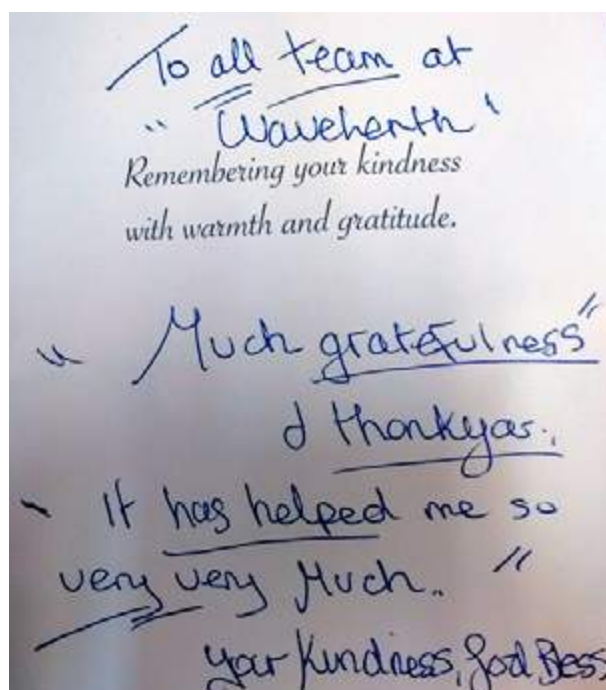 To all team at
" Wavehenth "
Remembering your kindness
with warmth and gratitude.
" Much gratefulness"
d thankyou.
" It has helped me so
very very Much.. "
your Kindness, God Bless